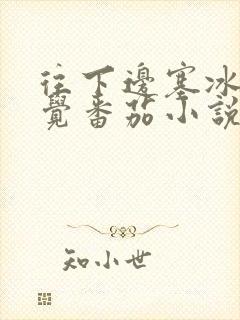 往下邊塞冰
覺番茄小說
知小世